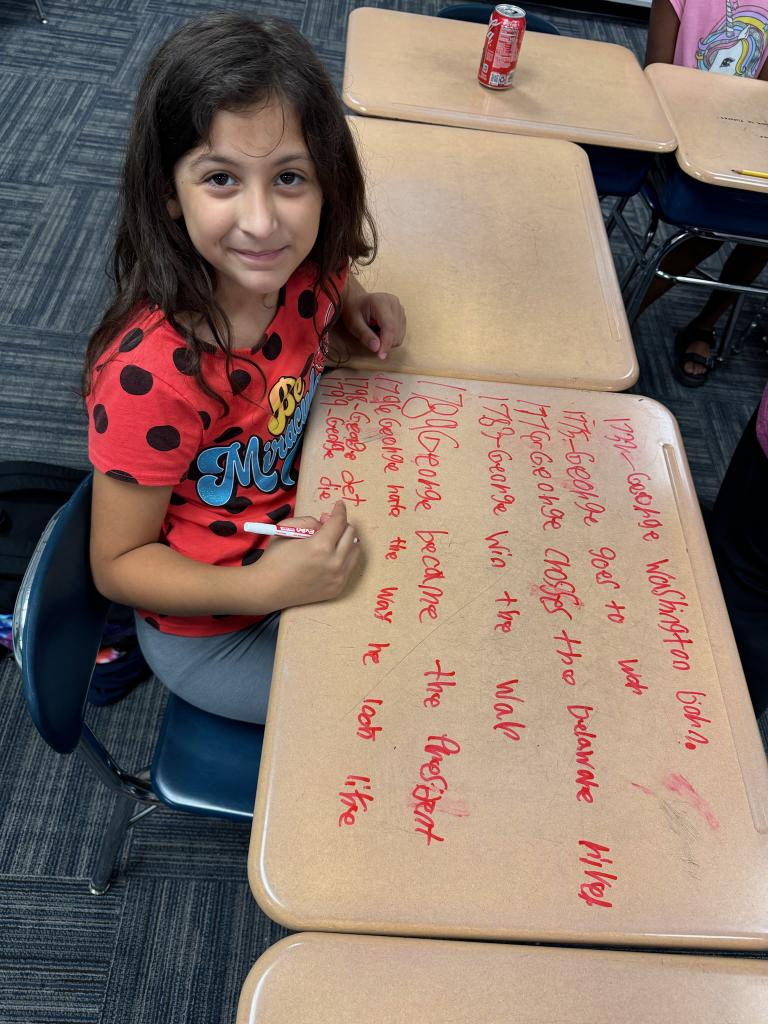 1732-George Washington born.
1775-George goes to war
1776-George crosses the Delaware river
1783-George win the war
1789 George became the President
1796 George wrote the way he look like
1798-George det
1799-George die
Be
Miracul
EXPO